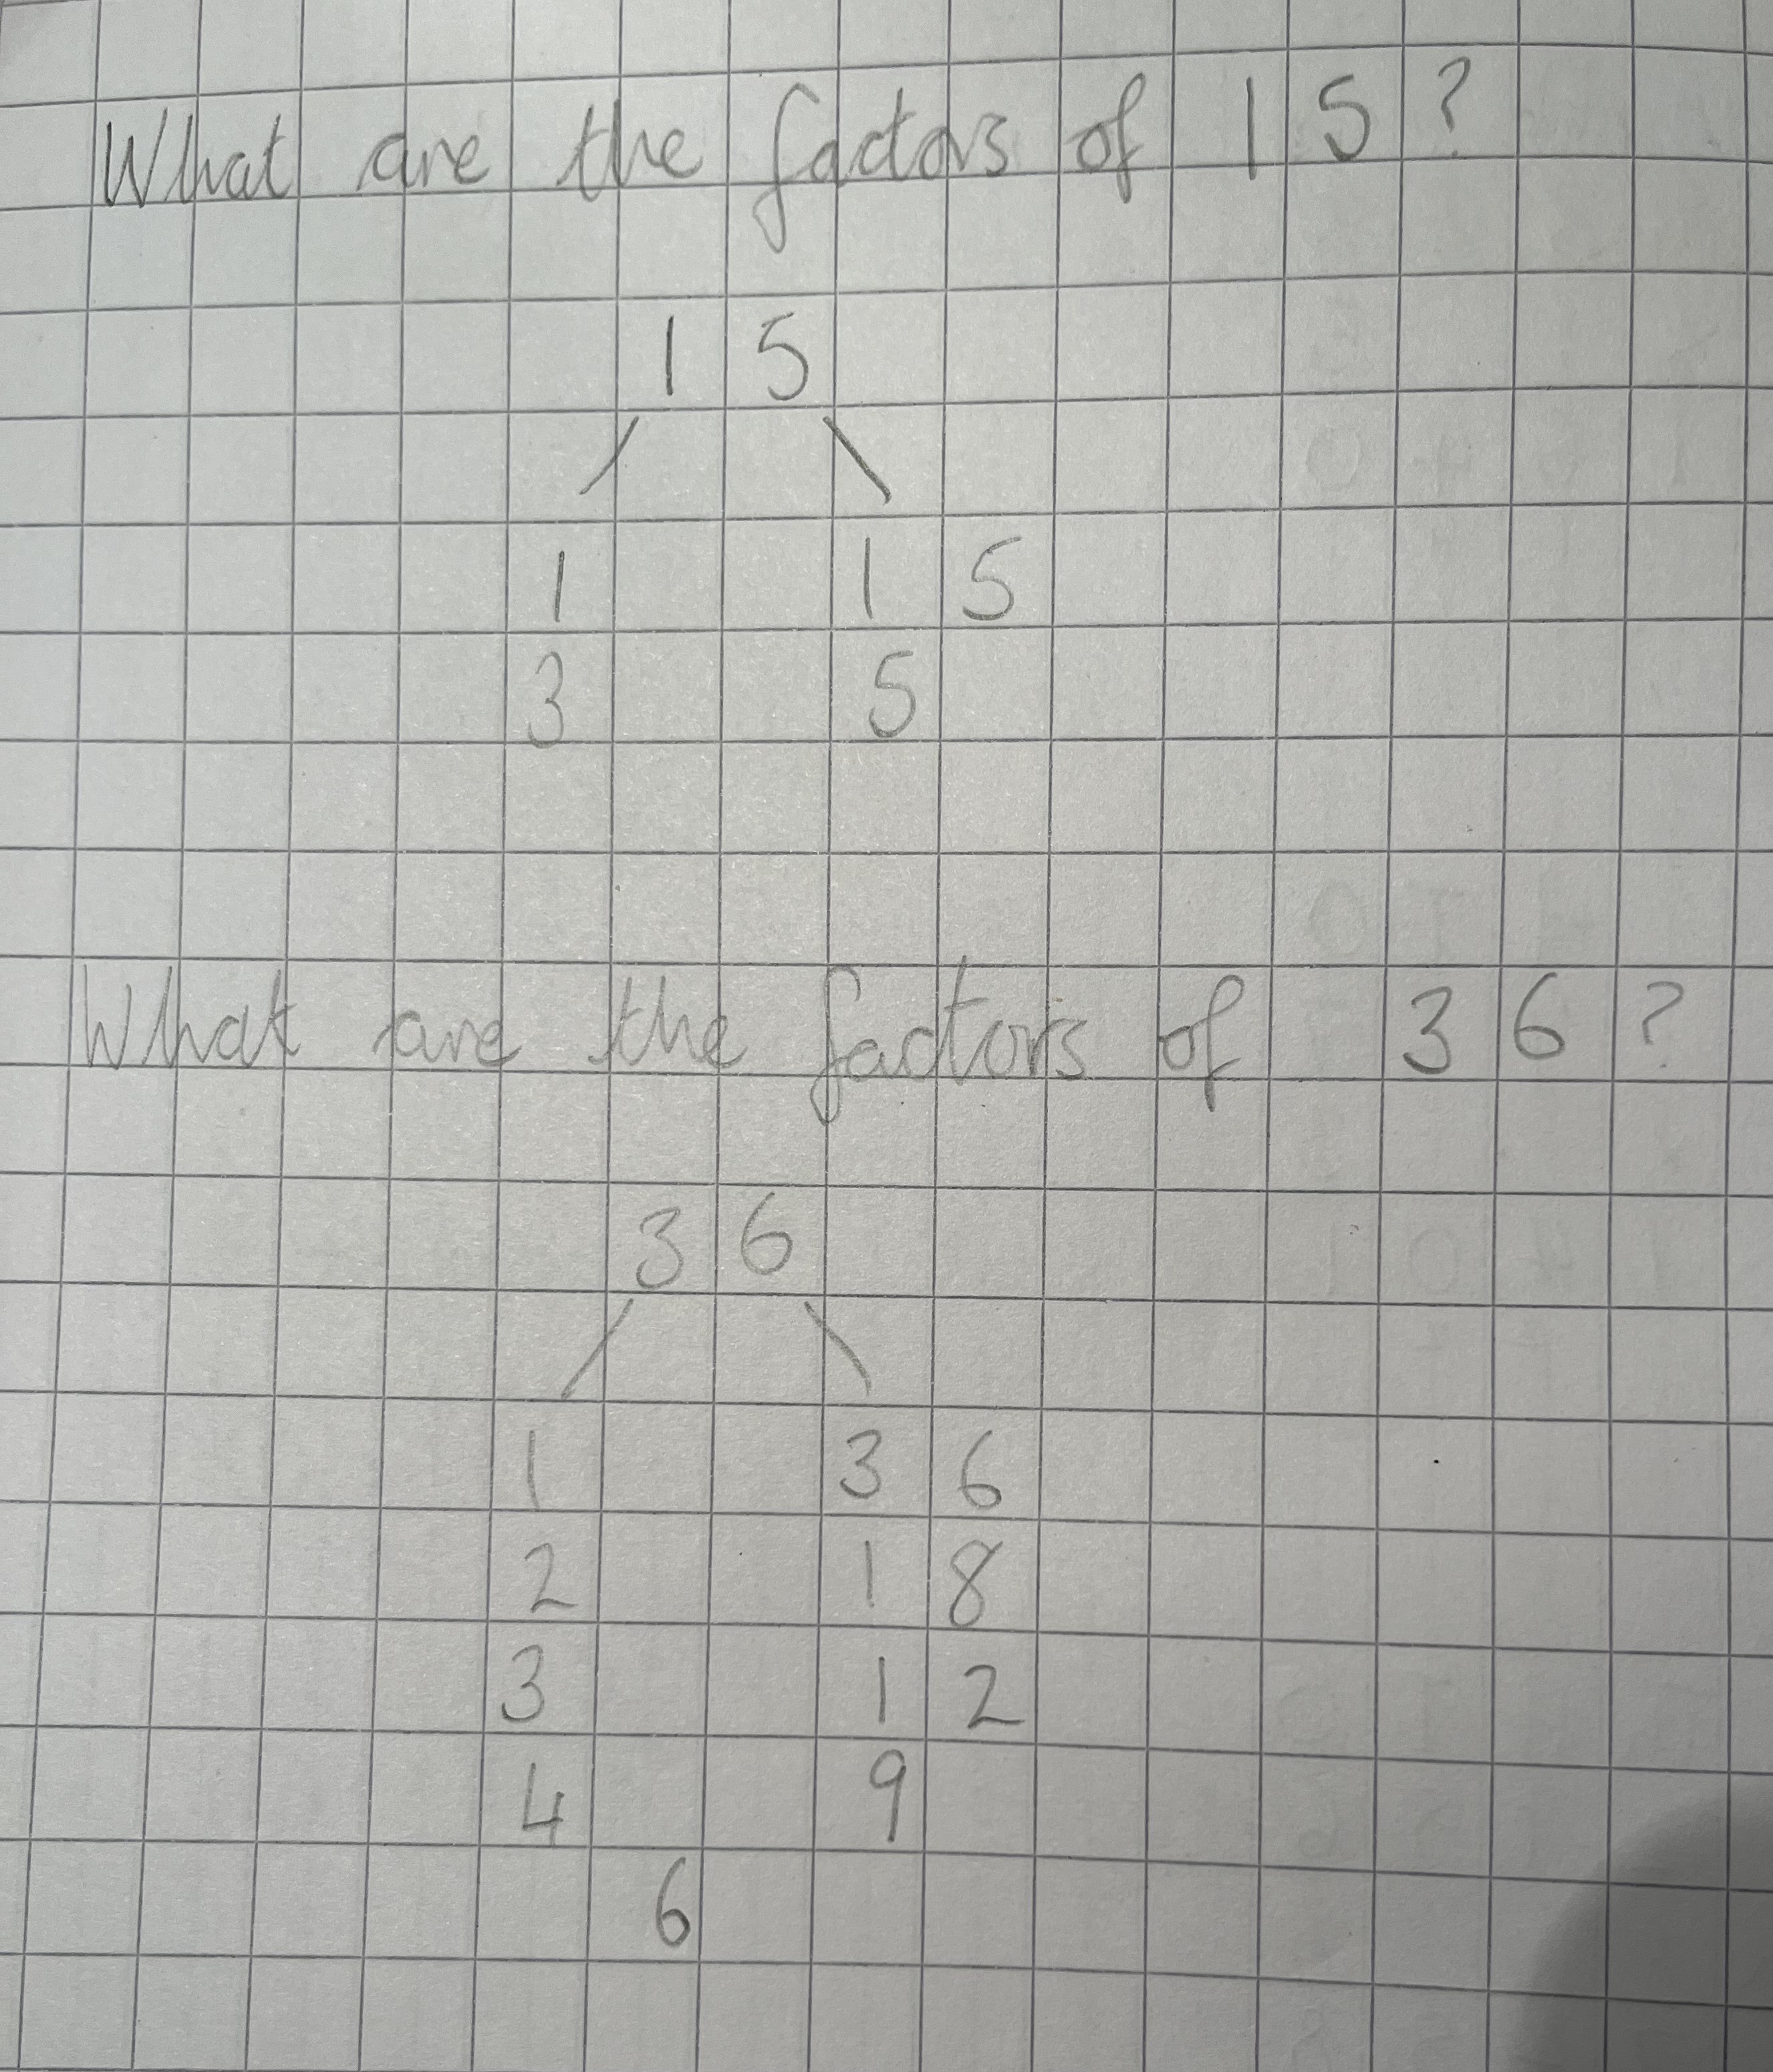 What are the factors of 15?
15
1 15
3 5
What are the factors of 36?
36
1 36
2 18
3 12
4 9
6